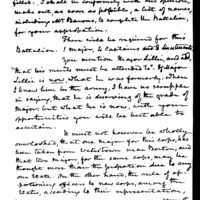 filled. I shall in conformity with this opinion,
make out, as soon as possible, a list of names,
including Mr Barons, to complete the Battalion,
for your approbation.
There will be required for this
Battalion. 1 Major. 4 Captains and 8 Lieutenants
You mention Major Lillie, and
that his merits must be attended to. Major
Lillie is now what he was formerly. When
I knew him in the army, I have no scruple
in saying, that he is deserving of the grade of
major: but what he is now, with the
opportunities you will be best able to
ascertain.
It must not however be wholly
overlooked, that one Major for this corps, has
been taken from Watertown near Boston, and
that two majors for the same corps, may be
thought more than the proportion due to any
one State. On the other hand, the rule of ap-
portioning officers to new corps, among the
States, according to their representation,